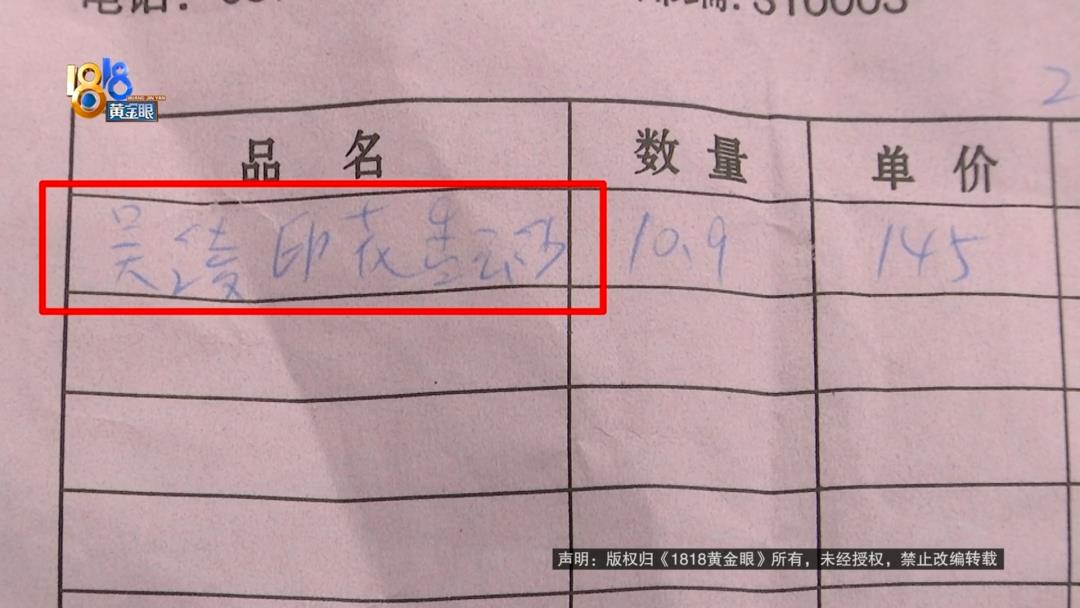 电话：
邮编:310003
1818
HUANG JIN YAN
黄金眼
2
品名 数量 单价
吴绫印花香云纱 10.9 145
声明：版权归《1818黄金眼》所有，未经授权，禁止改编转载